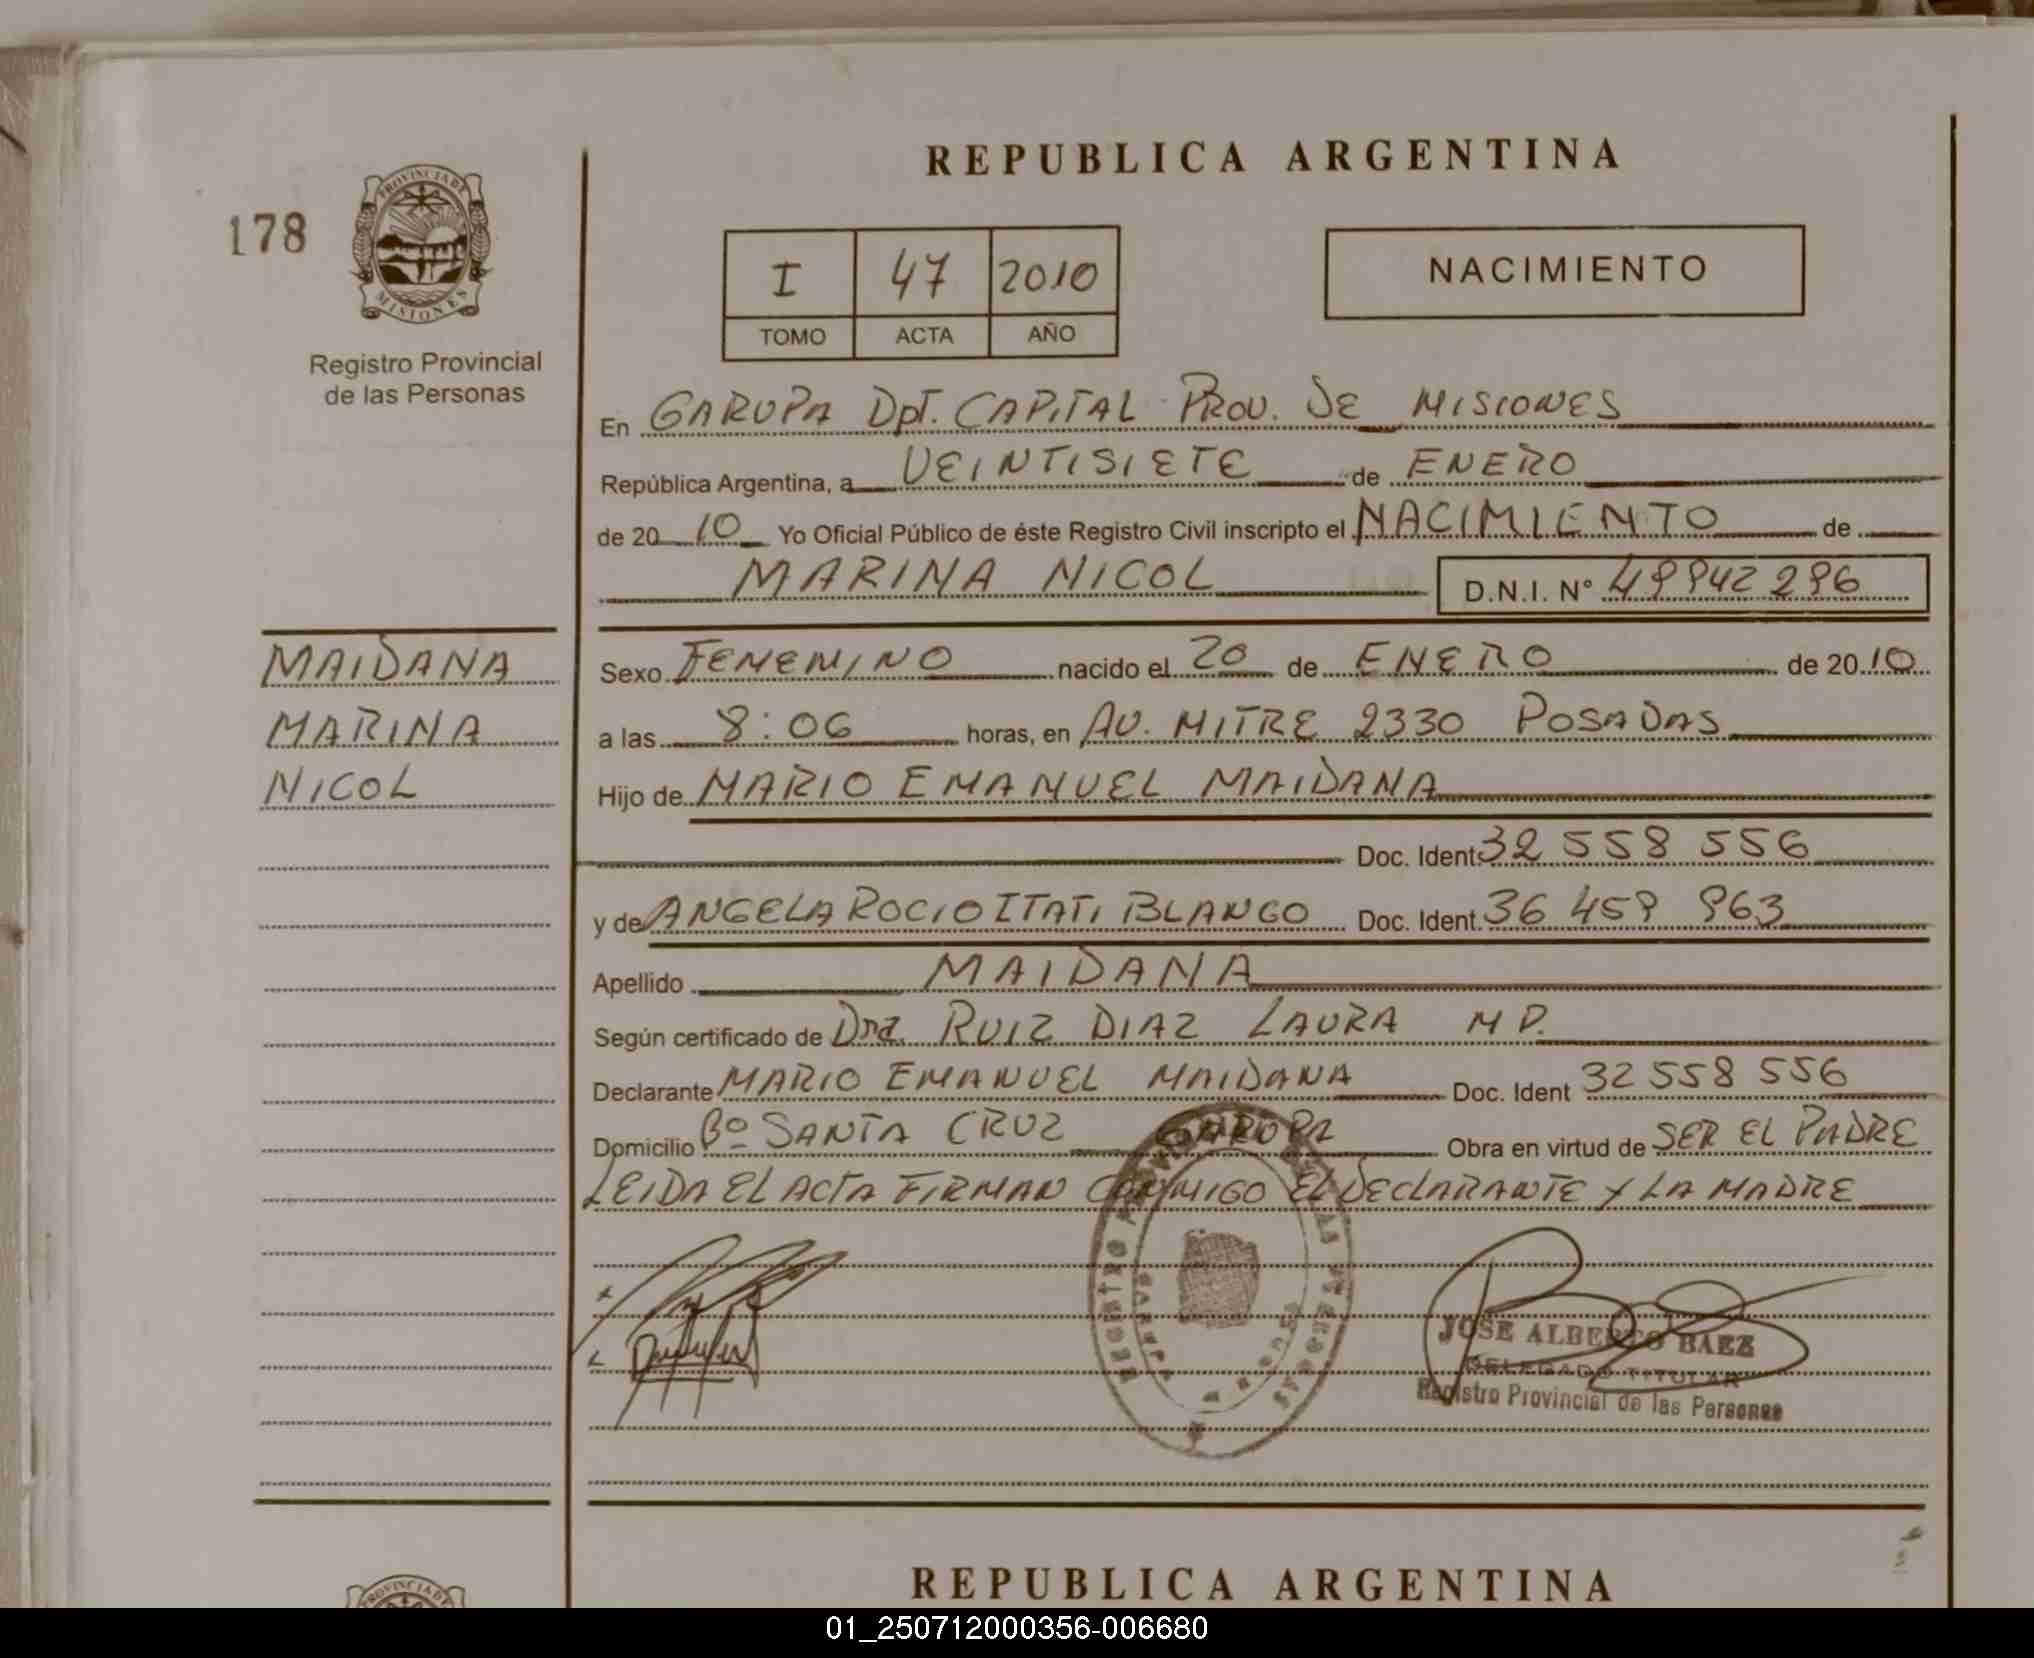 REPUBLICA ARGENTINA
178
PROVINCIA DE
MISIONES
Registro Provincial
de las Personas
I 47 2010
TOMO ACTA AÑO
NACIMIENTO
En GARUPA Dpt. CAPITAL PROV. DE MISIONES
República Argentina, a VEINTISIETE de ENERO
de 2010 Yo Oficial Público de éste Registro Civil inscripto el NACIMIENTO de
MARINA NICOL D.N.I. Nº 49942296
MAIDANA
MARINA
NICOL
Sexo FEMENINO nacido el 20 de ENERO de 2010
a las 8:06 horas, en AV. MITRE 2330 POSADAS
Hijo de MARIO EMANUEL MAIDANA
Doc. Ident. 32 558 556
y de ANGELA ROCIO ITATI BLANCO Doc. Ident. 36 459 963
Apellido MAIDANA
Según certificado de Dra. RUIZ DIAZ LAURA M P.
Declarante MARIO EMANUEL MAIDANA Doc. Ident 32 558 556
Domicilio Bº SANTA CRUZ GARUPA Obra en virtud de SER EL PADRE
LEIDA EL ACTA FIRMAN CONMIGO EL DECLARANTE Y LA MADRE
REGISTRO PROVINCIAL DE LAS PERSONAS
GARUPA
JOSE ALBERTO BAEZ
DELEGADO TITULAR
Registro Provincial de las Personas
REPUBLICA ARGENTINA
PROVINCIA DE
01_250712000356-006680